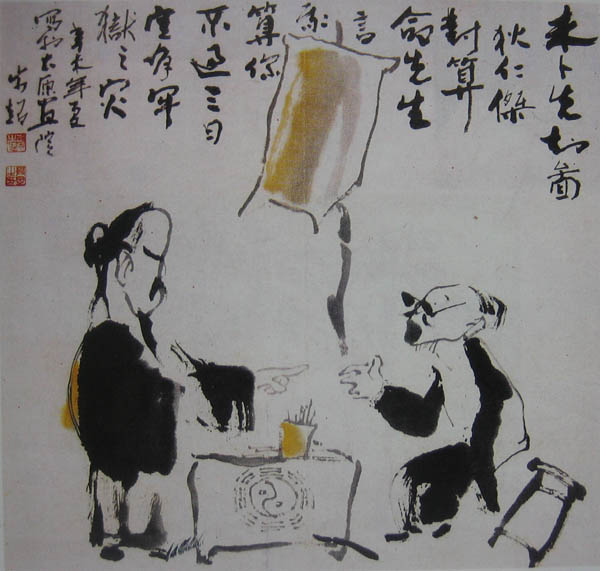 未卜先知圖
狄仁傑
對算
命先生
言
我
算你
不過三日
定牢
獄之灾
辛未年夏
寫於太原畫院